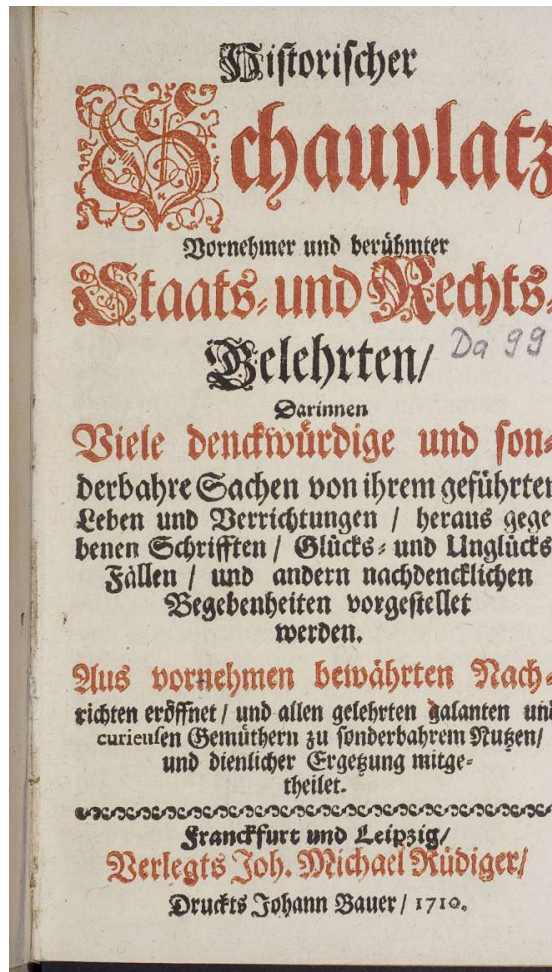 Historischer
Schauplatz
Vornehmer und berühmter
Staats- und Rechts-
Gelehrten/
Da 99
Darinnen
Viele denckwürdige und son-
derbahre Sachen von ihrem geführten
Leben und Verrichtungen / heraus gege
benen Schrifften / Glücks- und Unglücks
Fällen / und andern nachdencklichen
Begebenheiten vorgestellet
werden.
Aus vornehmen bewährten Nach-
richten eröffnet / und allen gelehrten galanten und
curieusen Gemüthern zu sonderbahrem Nutzen/
und dienlicher Ergetzung mitge-
theilet.
Franckfurt und Leipzig/
Verlegts Joh. Michael Rüdiger/
Druckts Johann Bauer / 1710.